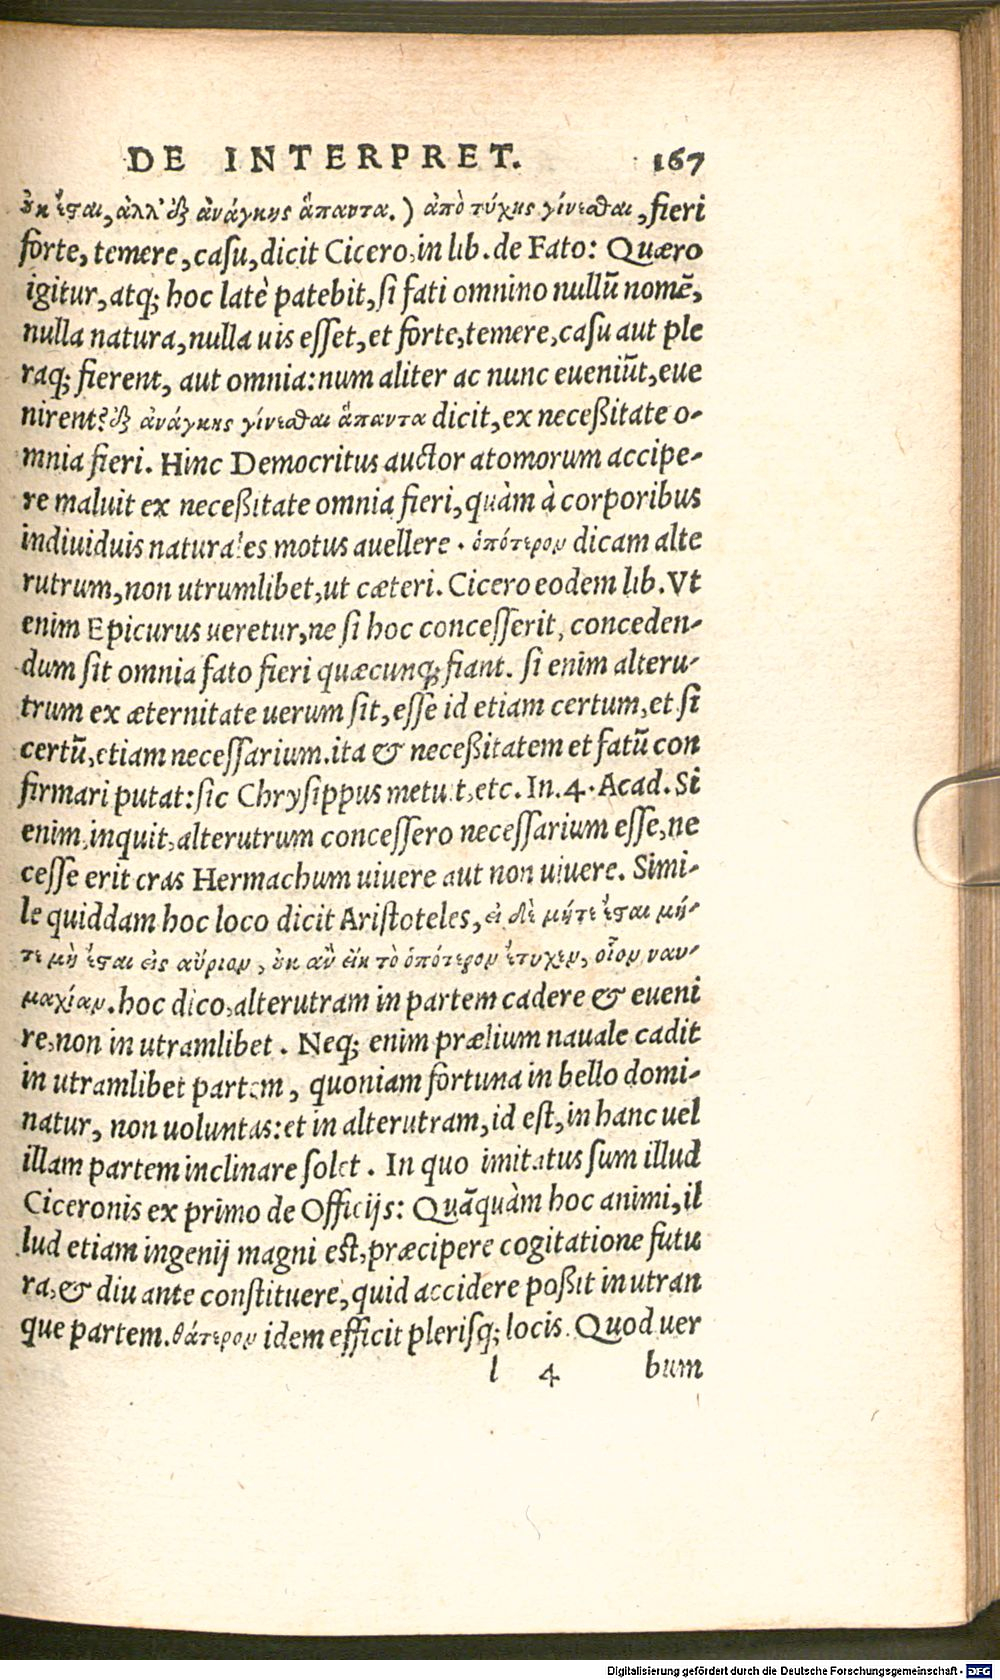 DE INTERPRET. 167
οὐκ ἔσται, ἀλλ' ἐξ ἀνάγκης ἅπαντα.) ἀπὸ τύχης γίνεσθαι, fieri
forte, temere, casu, dicit Cicero, in lib. de Fato: Quæro
igitur, atq; hoc latè patebit, si fati omnino nullũ nomẽ,
nulla natura, nulla uis esset, et forte, temere, casu aut ple
raq; fierent, aut omnia: num aliter ac nunc eueniũt, eue
nirent? ἐξ ἀνάγκης γίνεσθαι ἅπαντα dicit, ex neceßitate o-
mnia fieri. Hinc Democritus auctor atomorum accipe-
re maluit ex neceßitate omnia fieri, quàm à corporibus
indiuiduis naturales motus auellere. ὁπότερον dicam alte
rutrum, non utrumlibet, ut cæteri. Cicero eodem lib. Vt
enim Epicurus ueretur, ne si hoc concesserit, conceden-
dum sit omnia fato fieri quæcunq; fiant. si enim alteru-
trum ex æternitate uerum sit, esse id etiam certum, et si
certũ, etiam necessarium. ita & neceßitatem et fatũ con
firmari putat: sic Chrysippus metuit, etc. In. 4. Acad. Si
enim, inquit, alterutrum concessero necessarium esse, ne
cesse erit cras Hermachum uiuere aut non uiuere. Simi-
le quiddam hoc loco dicit Aristoteles, εἰ δὲ μήτε ἔσται μή-
τε μὴ ἔσται εἰς αὔριον, οὐκ ἂν εἴη τὸ ὁπότερον ἔτυχεν, οἷον ναυ-
μαχίαν. hoc dico, alterutram in partem cadere & eueni
re, non in utramlibet. Neq; enim prælium nauale cadit
in utramlibet partem, quoniam fortuna in bello domi-
natur, non uoluntas: et in alterutram, id est, in hanc uel
illam partem inclinare solet. In quo imitatus sum illud
Ciceronis ex primo de Officijs: Quãquàm hoc animi, il
lud etiam ingenij magni est, præcipere cogitatione futu
ra, & diu ante constituere, quid accidere poßit in utran
que partem. θάτερον idem efficit plerisq; locis. Quod uer
l 4 bum
Digitalisierung gefördert durch die Deutsche Forschungsgemeinschaft - DFG